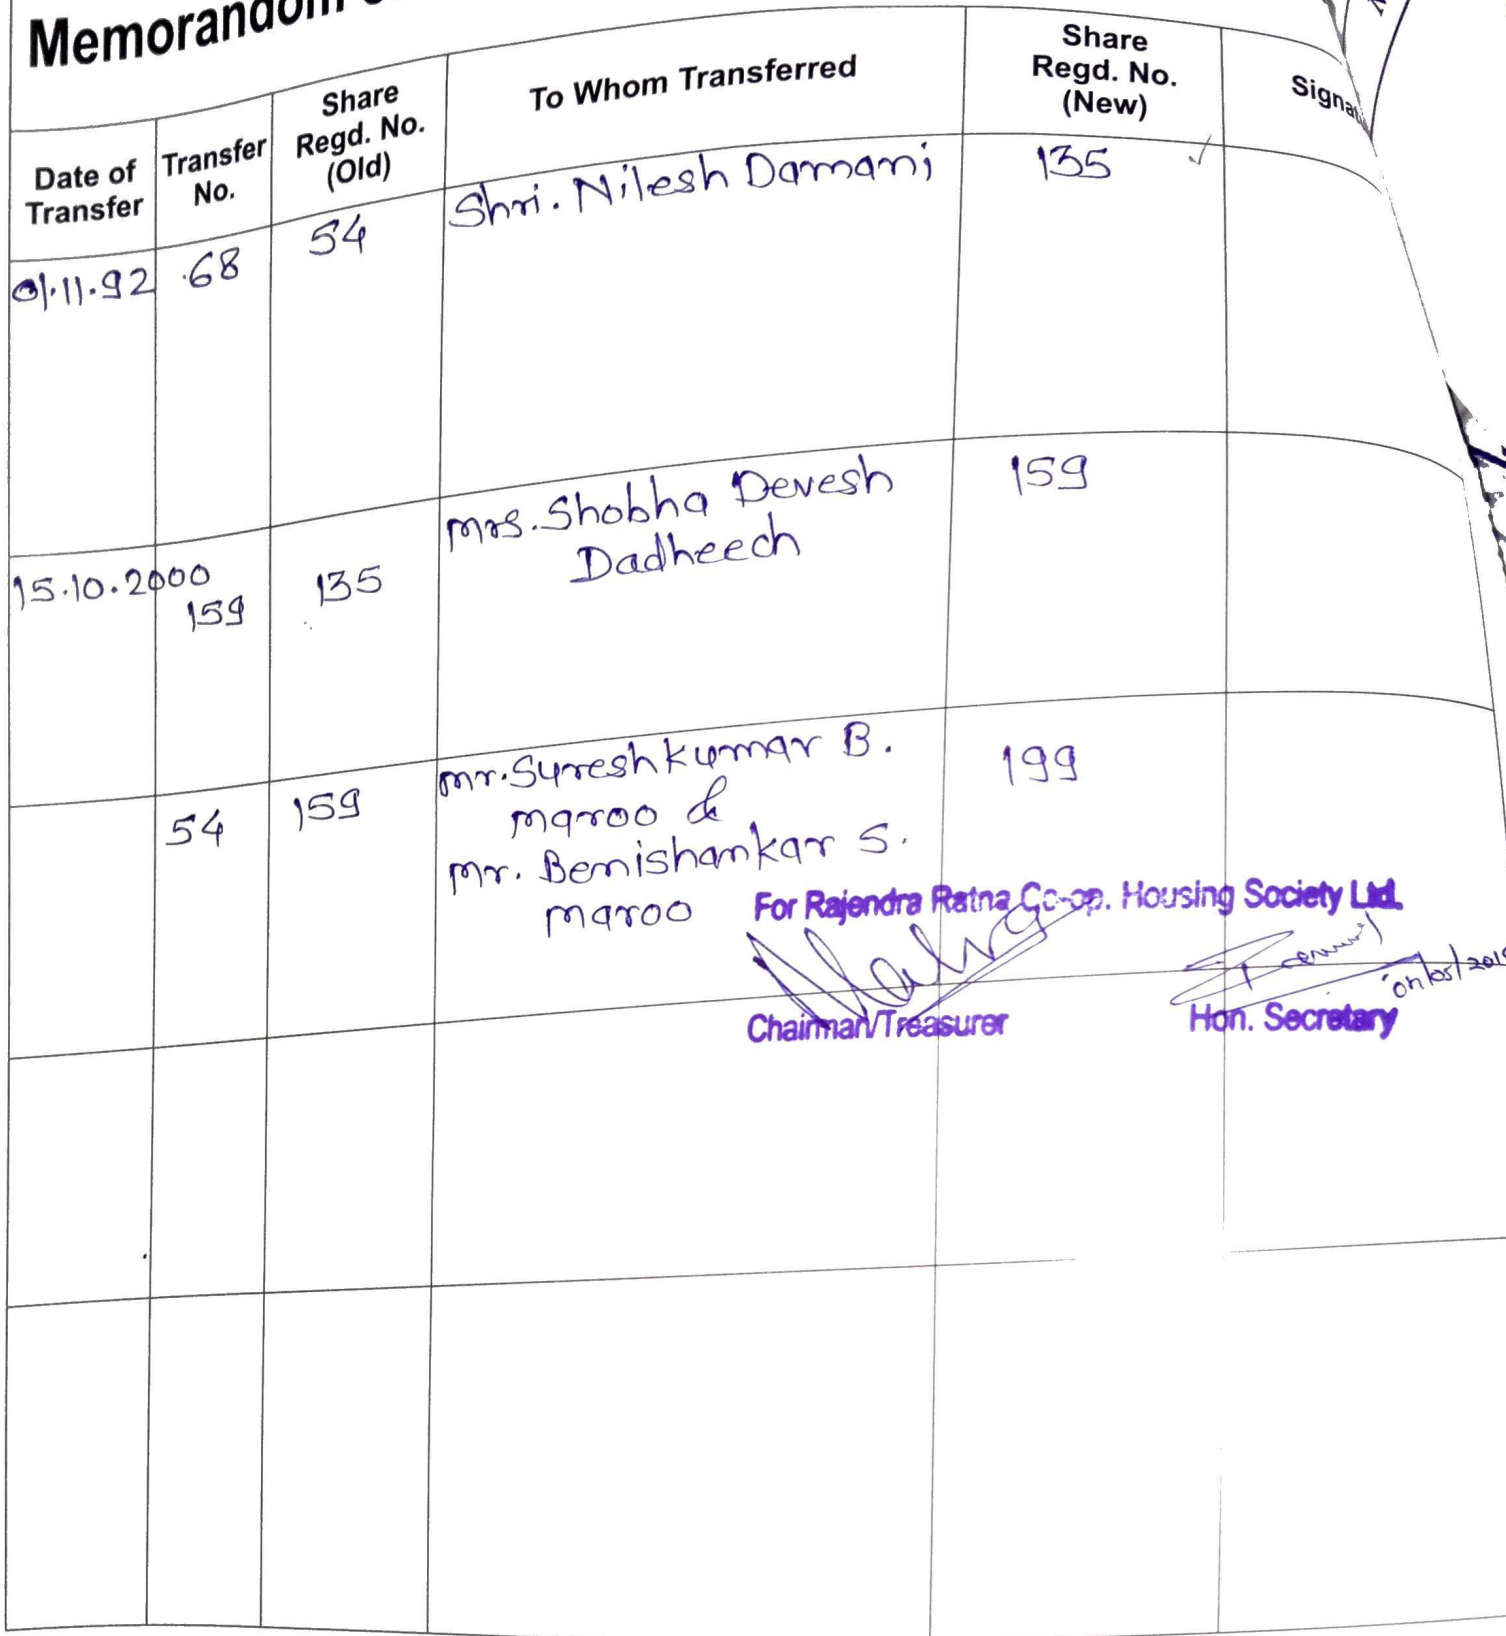 Memorandom
Date of Transfer
Transfer No.
Share Regd. No. (Old)
To Whom Transferred
Share Regd. No. (New)
01.11.92 68 54 Shri. Nilesh Damani 135 ✓
15.10.2000 159 135 Mrs. Shobha Devesh 159
Dadheech
54 159 Mr. Sureshkumar B. 199
Maroo &
Mr. Benishankar S.
Maroo
For Rajendra Ratna Co-op. Housing Society Ltd.
Chairman/Treasurer Hon. Secretary